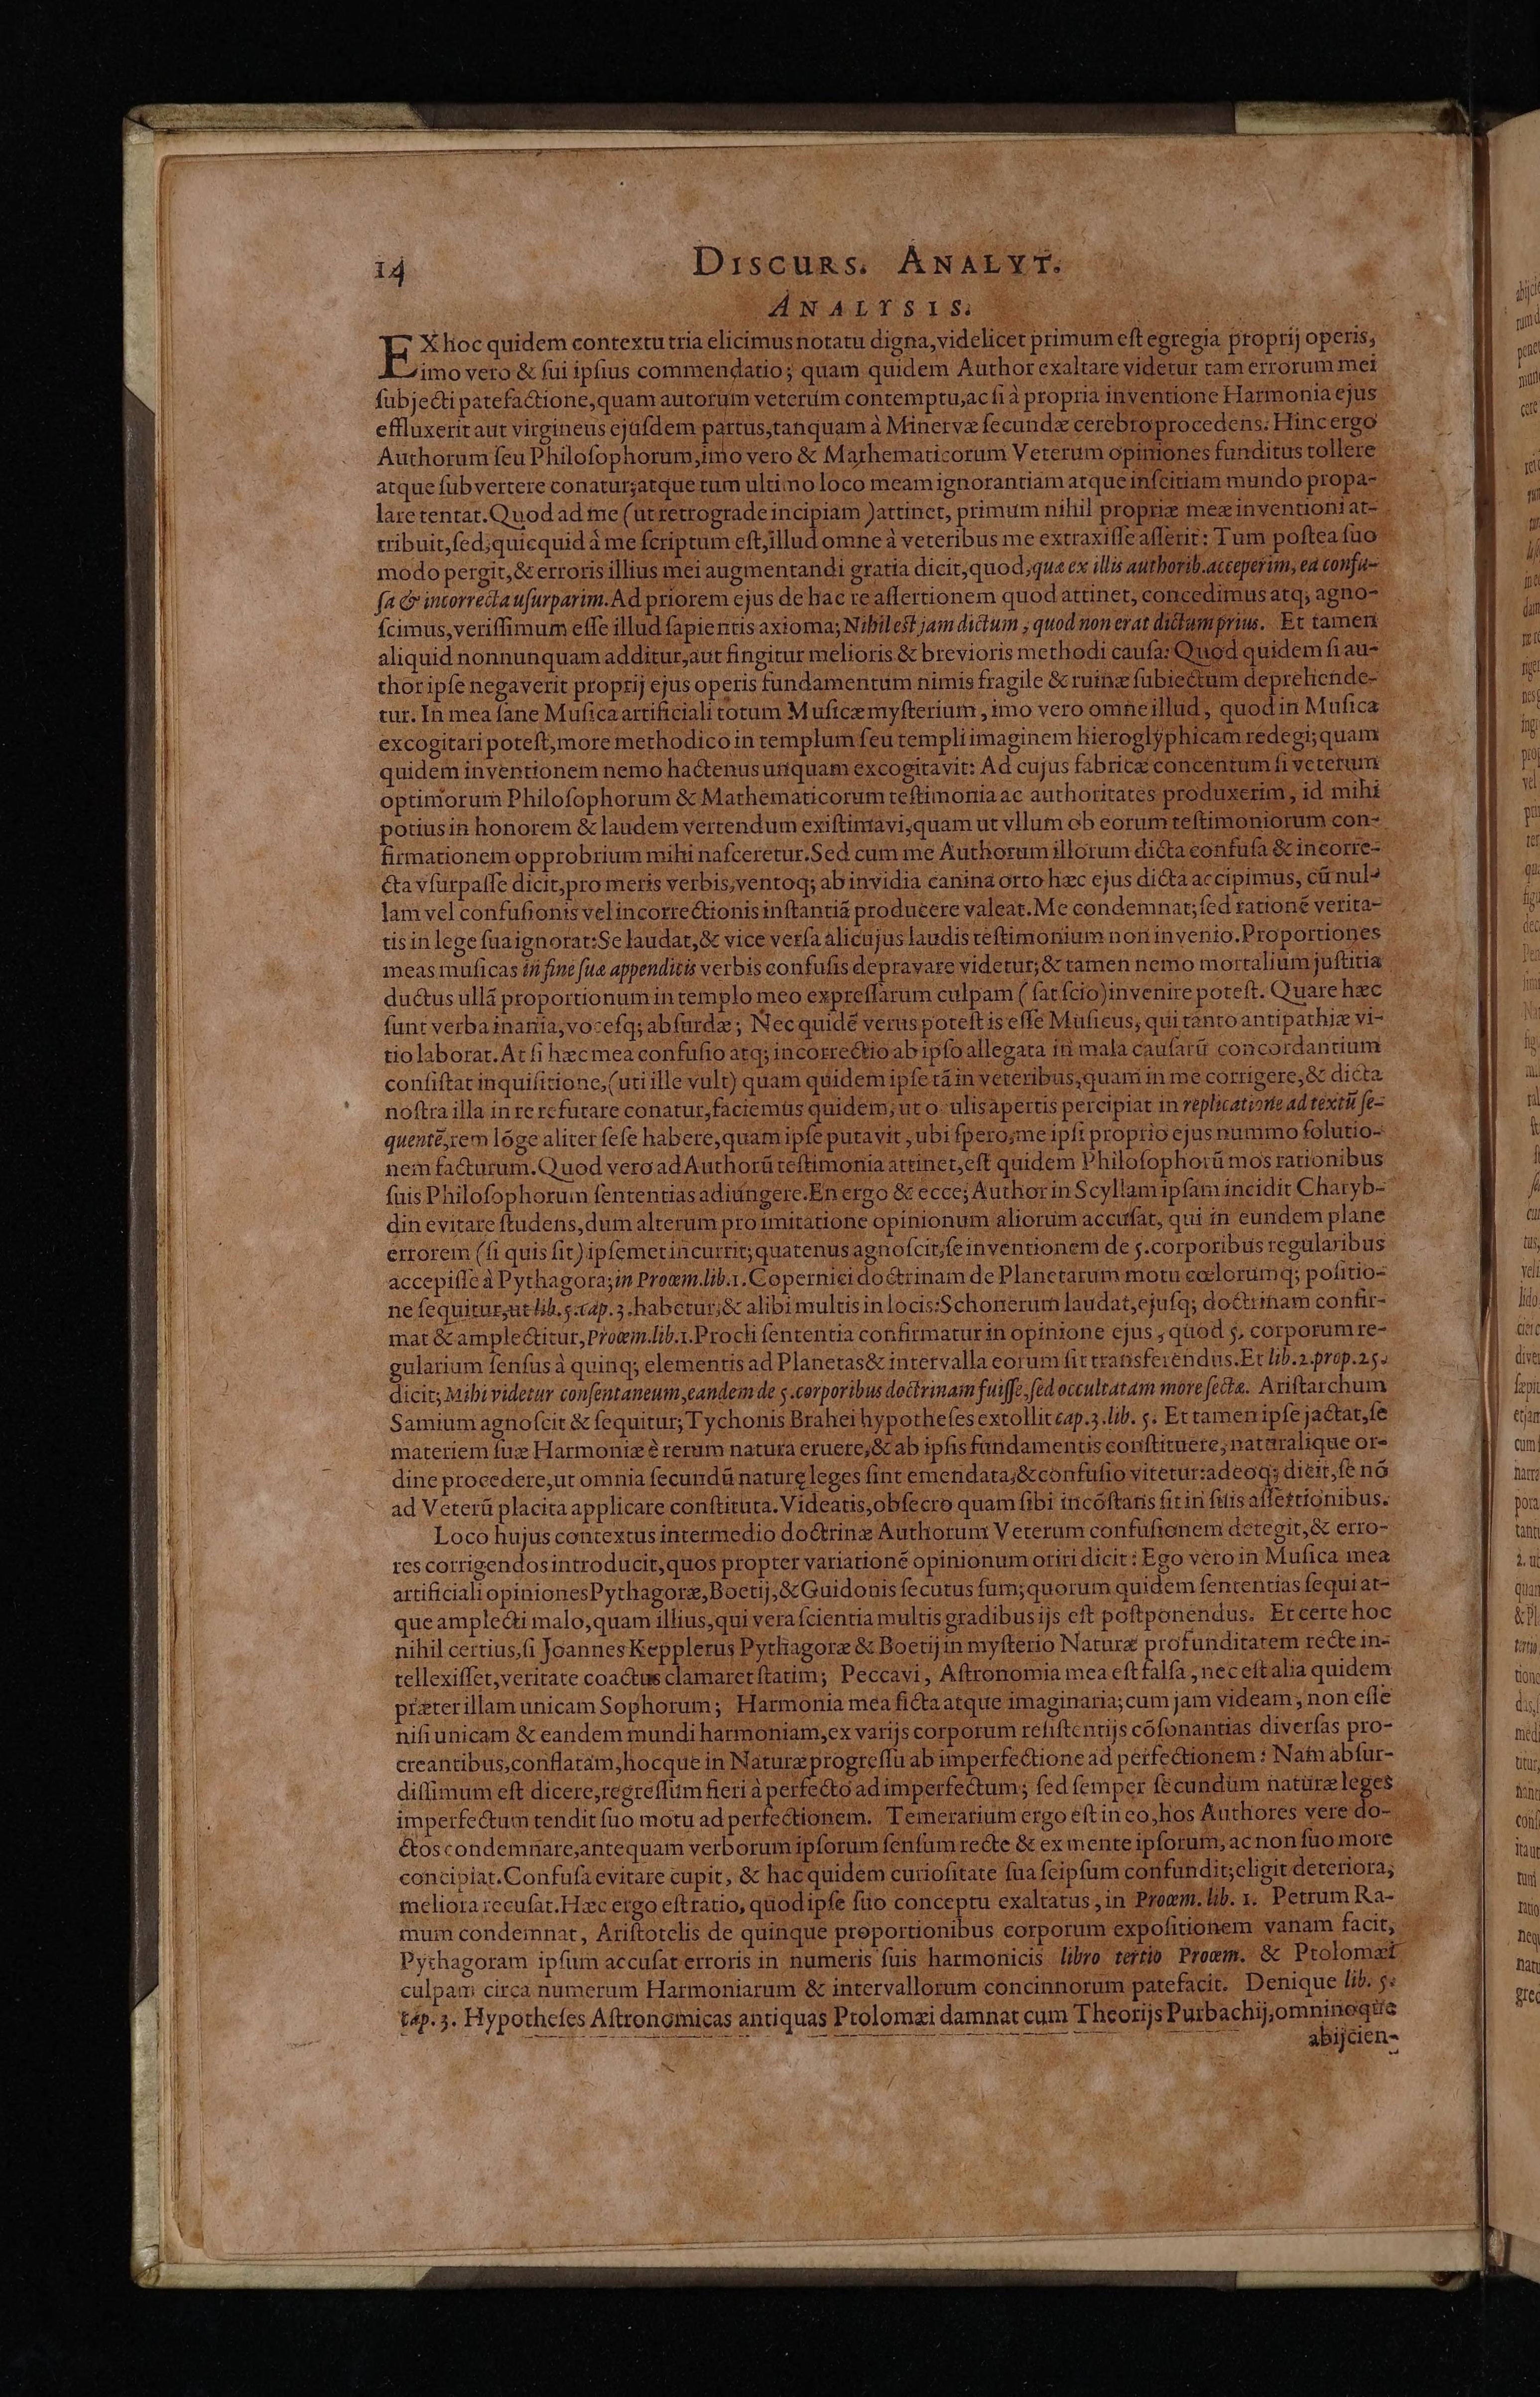 14 Discurs. Analyt.
Analysis.
EX hoc quidem contextu tria elicimus notatu digna, videlicet primum est egregia proprij operis,
imo vero & sui ipsius commendatio; quam quidem Author exaltare videtur tam errorum mei
subjecti patefactione, quam autorum veterum contemptu, ac si à propria inventione Harmonia ejus
effluxerit aut virgineus ejusdem partus, tanquam à Minervæ fecundæ cerebro procedens. Hinc ergo
Authorum seu Philosophorum, imo vero & Mathematicorum Veterum opiniones funditus tollere
atque subvertere conatur; atque tum ultimo loco meam ignorantiam atque inscitiam mundo propa-
lare tentat. Quod ad me (ut retrograde incipiam) attinet, primum nihil propriæ meæ inventioni at-
tribuit, sed; quicquid à me scriptum est, illud omne à veteribus me extraxisse asserit: Tum postea suo
modo pergit, & erroris illius mei augmentandi gratia dicit, quod, quæ ex illis authorib. acceperim, ea confu-
sa & incorrecta usurparim. Ad priorem ejus de hac re assertionem quod attinet, concedimus atq; agno-
scimus, verissimum esse illud sapientis axioma; Nihil est jam dictum, quod non erat dictum prius. Et tamen
aliquid nonnunquam additur, aut fingitur melioris & brevioris methodi causa: Quod quidem si au-
thor ipse negaverit proprij ejus operis fundamentum nimis fragile & ruinæ subiectum deprehende-
tur. In mea sane Musica artificiali totum Musicæ mysterium, imo vero omne illud, quod in Musica
excogitari potest, more methodico in templum seu templi imaginem hieroglyphicam redegi; quam
quidem inventionem nemo hactenus unquam excogitavit: Ad cujus fabricæ concentum si veterum
optimorum Philosophorum & Mathematicorum testimonia ac authoritates produxerim, id mihi
potius in honorem & laudem vertendum existimavi, quam ut vllum ob eorum testimoniorum con-
firmationem opprobrium mihi nasceretur. Sed cum me Authorum illorum dicta confusa & incorre-
cta vsurpasse dicit, pro meris verbis, ventoq; ab invidia canina orto hæc ejus dicta accipimus, cū nul-
lam vel confusionis vel incorrectionis instantiā producere valeat. Me condemnat; sed rationē verita-
tis in lege sua ignorat: Se laudat, & vice versa alicujus laudis testimonium non invenio. Proportiones
meas musicas in fine suæ appendicis verbis confusis depravare videtur; & tamen nemo mortalium justitia
ductus ullā proportionum in templo meo expressarum culpam (sat scio) invenire potest. Quare hæc
sunt verba inania, vocesq; absurdæ; Nec quidē verus potest is esse Musicus, qui tanto antipathiæ vi-
tio laborat. At si hæc mea confusio atq; incorrectio ab ipso allegata in mala causarū concordantium
consistat inquisitione, (uti ille vult) quam quidem ipse tā in veteribus, quam in me corrigere, & dicta
nostra illa in re refutare conatur, faciemus quidem, ut oculis apertis percipiat in replicatione ad textū se-
quentē, rem lōge aliter sese habere, quam ipse putavit, ubi spero, me ipsi proprio ejus nummo solutio-
nem facturum. Quod vero ad Authorū testimonia attinet, est quidem Philosophorū mos rationibus
suis Philosophorum sententias adiungere. En ergo & ecce; Author in Scyllam ipsam incidit Charyb-
din evitare studens, dum alterum pro imitatione opinionum aliorum accusat, qui in eundem plane
errorem (si quis sit) ipsemet incurrit; quatenus agnoscit, se inventionem de 5. corporibus regularibus
accepisse à Pythagora; in Proœm. lib. 1. Copernici doctrinam de Planetarum motu cœlorumq; positio-
ne sequitur, ut lib. 5. cap. 3. habetur; & alibi multis in locis: Schonerum laudat, ejusq; doctrinam confir-
mat & amplectitur, Proœm. lib. 1. Procli sententia confirmatur in opinione ejus, quod 5. corporum re-
gularium sensus à quinq; elementis ad Planetas & intervalla eorum sit transferendus. Et lib. 2. prop. 25.
dicit; Mihi videtur consentaneum, eandem de 5. corporibus doctrinam fuisse, sed occultatam more sectæ. Aristarchum
Samium agnoscit & sequitur; Tychonis Brahei hypotheses extollit cap. 3. lib. 5. Et tamen ipse jactat, se
materiem suæ Harmoniæ è rerum natura eruere, & ab ipsis fundamentis constituere, naturalique or-
dine procedere, ut omnia secundū naturę leges sint emendata, & confusio vitetur: adeoq; dicit, se nō
ad Veterū placita applicare constituta. Videatis, obsecro quam sibi incōstans sit in suis assertionibus.
Loco hujus contextus intermedio doctrinæ Authorum Veterum confusionem detegit, & erro-
res corrigendos introducit, quos propter variationē opinionum oriri dicit: Ego vero in Musica mea
artificiali opiniones Pythagoræ, Boetij, & Guidonis secutus sum; quorum quidem sententias sequi at-
que amplecti malo, quam illius, qui vera scientia multis gradibus ijs est postponendus. Et certe hoc
nihil certius, si Joannes Kepplerus Pythagoræ & Boetij in mysterio Naturæ profunditatem recte in-
tellexisset, veritate coactus clamaret statim; Peccavi, Astronomia mea est falsa, nec est alia quidem
præter illam unicam Sophorum; Harmonia mea ficta atque imaginaria; cum jam videam, non esse
nisi unicam & eandem mundi harmoniam, ex varijs corporum resistentijs cōsonantias diversas pro-
creantibus, conflatam, hocque in Naturæ progressu ab imperfectione ad perfectionem: Nam absur-
dissimum est dicere, regressum fieri à perfecto ad imperfectum; sed semper secundum naturæ leges
imperfectum tendit suo motu ad perfectionem. Temerarium ergo est in eo, hos Authores vere do-
ctos condemnare, antequam verborum ipsorum sensum recte & ex mente ipsorum, ac non suo more
concipiat. Confusa evitare cupit, & hac quidem curiositate sua seipsum confundit; eligit deteriora;
meliora recusat. Hæc ergo est ratio, quod ipse suo conceptu exaltatus, in Proœm. lib. 1. Petrum Ra-
mum condemnat, Aristotelis de quinque proportionibus corporum expositionem vanam facit,
Pythagoram ipsum accusat erroris in numeris suis harmonicis libro tertio Proœm. & Ptolomæi
culpam circa numerum Harmoniarum & intervallorum concinnorum patefacit. Denique lib. 5.
cap. 3. Hypotheses Astronomicas antiquas Ptolomæi damnat cum Theorijs Purbachij, omninoque
abijcien-